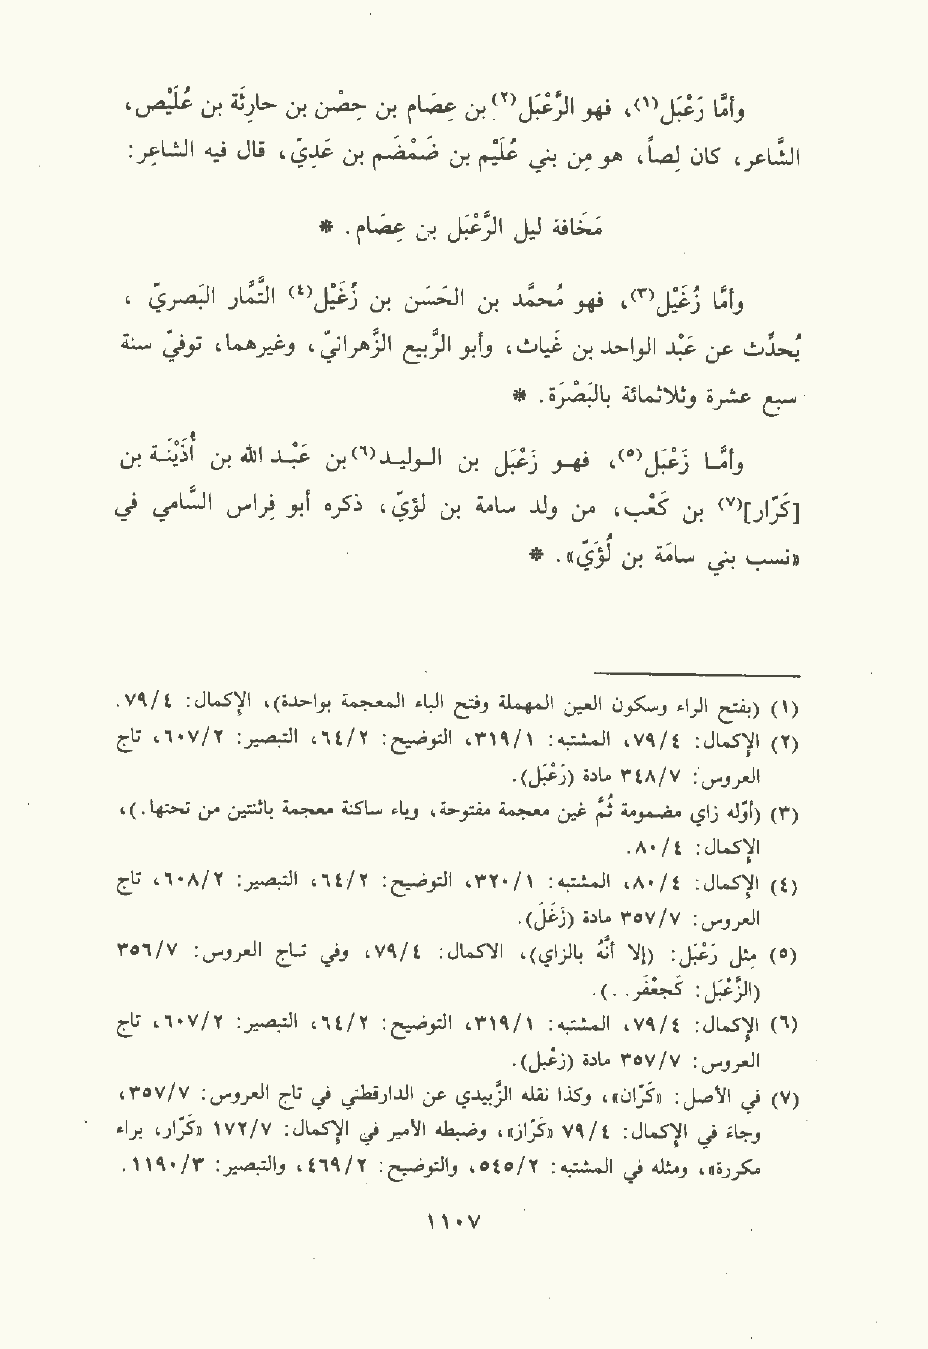 وأمّا رَعْبَل(١)، فهو الرَّعْبَل(٢) بن عِصَام بن حِصْن بن حارِثَة بن عُلَيْص،
الشَّاعر، كان لِصاً، هو مِن بني عُلَيْم بن ضَمْضَم بن عَدِيّ، قال فيه الشاعِر:
مَخَافة ليل الرَّعْبَل بن عِصَام. *
وأمّا زُغَيْل(٣)، فهو مُحمّد بن الحَسَن بن زُغَيْل(٤) التَّمَّار البَصريّ،
يُحدّث عن عَبْد الواحد بن غياث، وأبو الرَّبيع الزَّهرانيّ، وغيرهما، توفّي سنة
سبع عشرة وثلاثمائة بالبَصْرَة. *
وأمّا زَعْبَل(٥)، فهو زَعْبَل بن الوليد(٦) بن عَبْد الله بن أُذَيْنَة بن
[كَرّار](٧) بن كَعْب، من ولد سامة بن لؤيّ، ذكره أبو فِراس السَّاميّ في
«نسب بني سامَة بن لُؤَيّ». *
(١) (بفتح الراء وسكون العين المهملة وفتح الباء المعجمة بواحدة)، الإكمال: ٧٩/٤.
(٢) الإكمال: ٧٩/٤، المشتبه: ٣١٩/١، التوضيح: ٦٤/٢، التبصير: ٦٠٧/٢، تاج
العروس: ٣٤٨/٧ مادة (رَعْبَل).
(٣) (أوّله زاي مضمومة ثُمّ غين معجمة مفتوحة، وياء ساكنة معجمة باثنتين من تحتها.)،
الإكمال: ٨٠/٤.
(٤) الإكمال: ٨٠/٤، المشتبه: ٣٢٠/١، التوضيح: ٦٤/٢، التبصير: ٦٠٨/٢، تاج
العروس: ٣٥٧/٧ مادة (زَغَل).
(٥) مثل رَعْبَل: (إلا أنَّه بالزاي)، الإكمال: ٧٩/٤، وفي تاج العروس: ٣٥٦/٧
(الزَّعْبَل: كَجَعْفَر. .).
(٦) الإكمال: ٧٩/٤، المشتبه: ٣١٩/١، التوضيح: ٦٤/٢، التبصير: ٦٠٧/٢، تاج
العروس: ٣٥٧/٧ مادة (زعْبل).
(٧) في الأصل: «كَرّان»، وكذا نقله الزَّبيدي عن الدارقطني في تاج العروس: ٣٥٧/٧،
وجاءَ في الإكمال: ٧٩/٤ «كَرّاز»، وضبطه الأمير في الإكمال: ١٧٢/٧ «كَرّار، براء
مكررة»، ومثله في المشتبه: ٥٤٥/٢، والتوضيح: ٤٦٩/٢، والتبصير: ١١٩٠/٣.
١١٠٧